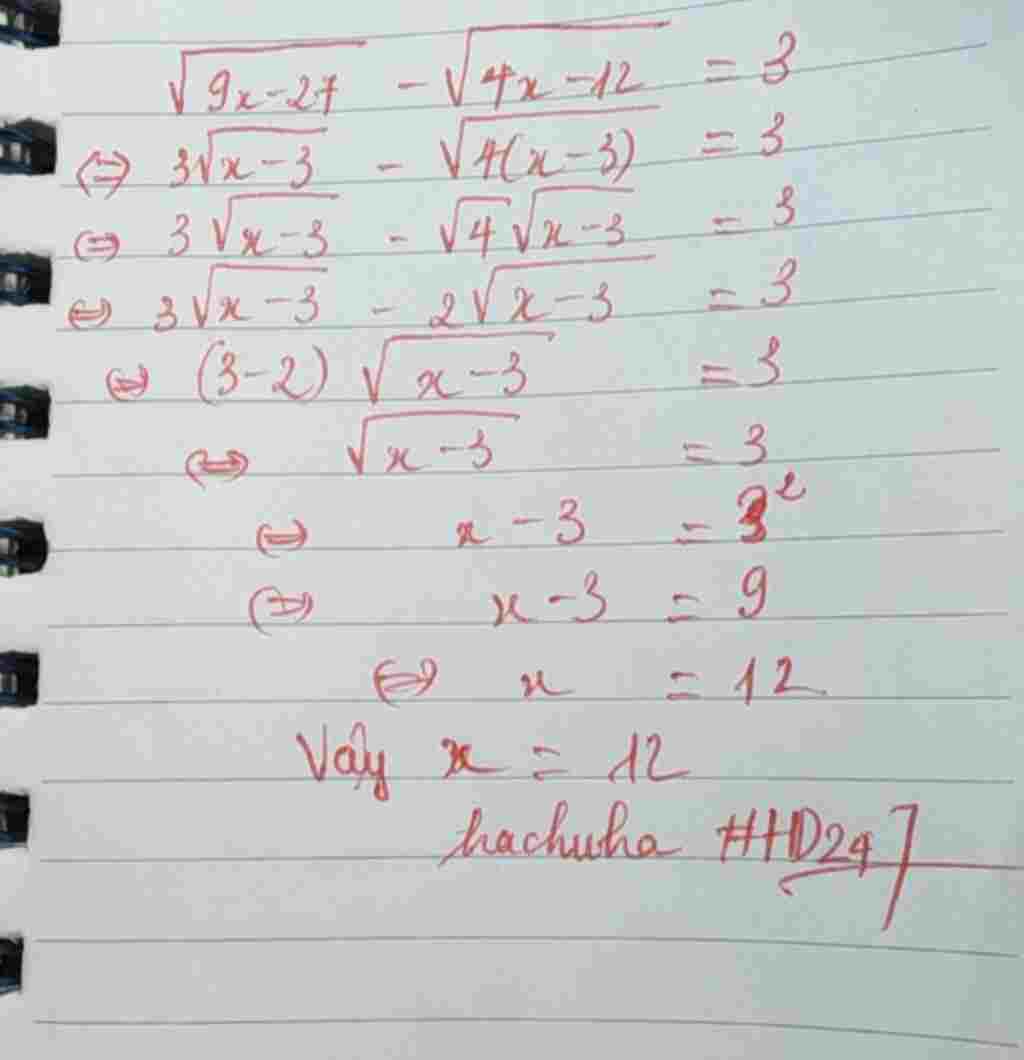 √(9x-27) - √(4x-12) = 3
⇔ 3√(x-3) - √(4(x-3)) = 3
⇔ 3√(x-3) - √4 √(x-3) = 3
⇔ 3√(x-3) - 2√(x-3) = 3
⇔ (3-2) √(x-3) = 3
⇔ √(x-3) = 3
⇔ x-3 = 3²
⇔ x-3 = 9
⇔ x = 12
Vậy x = 12
hachuha HHD247